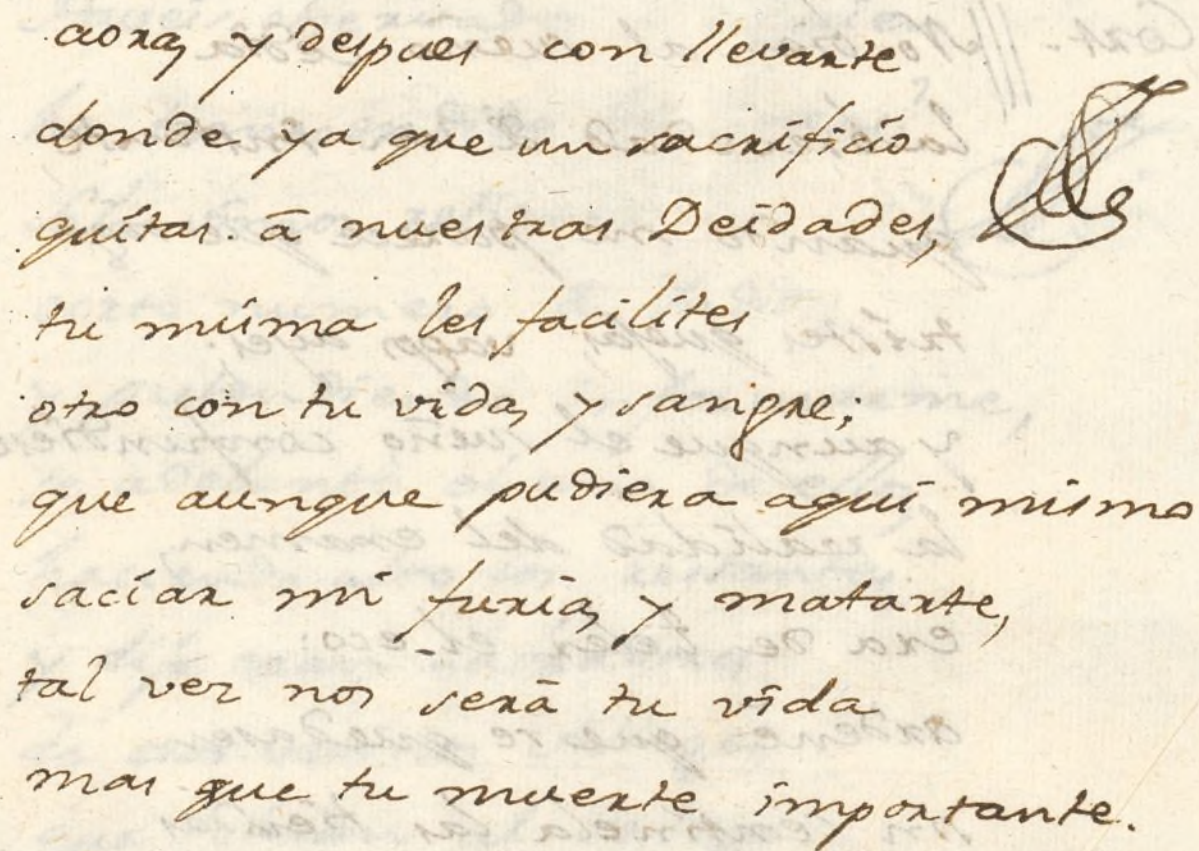 aora, y despues con llevarte
donde ya que un sacrificio
quitas à nuestras Deidades,
tu misma les facilites
otro con tu vida, y sangre;
que aunque pudiera aqui mismo
saciar mi furia, y matarte,
tal vez nos serà tu vida
mas que tu muerte importante.